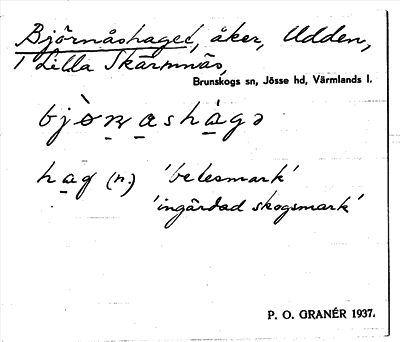 Björnåshaget, åker, Udden,
i Lilla Skärmnäs,
Brunskogs sn, Jösse hd, Värmlands l.
bjò̱ṉa̱shà̱gə
ha̱g (n.) 'betesmark'
'ingärdad skogsmark'
P. O. GRANÉR 1937.